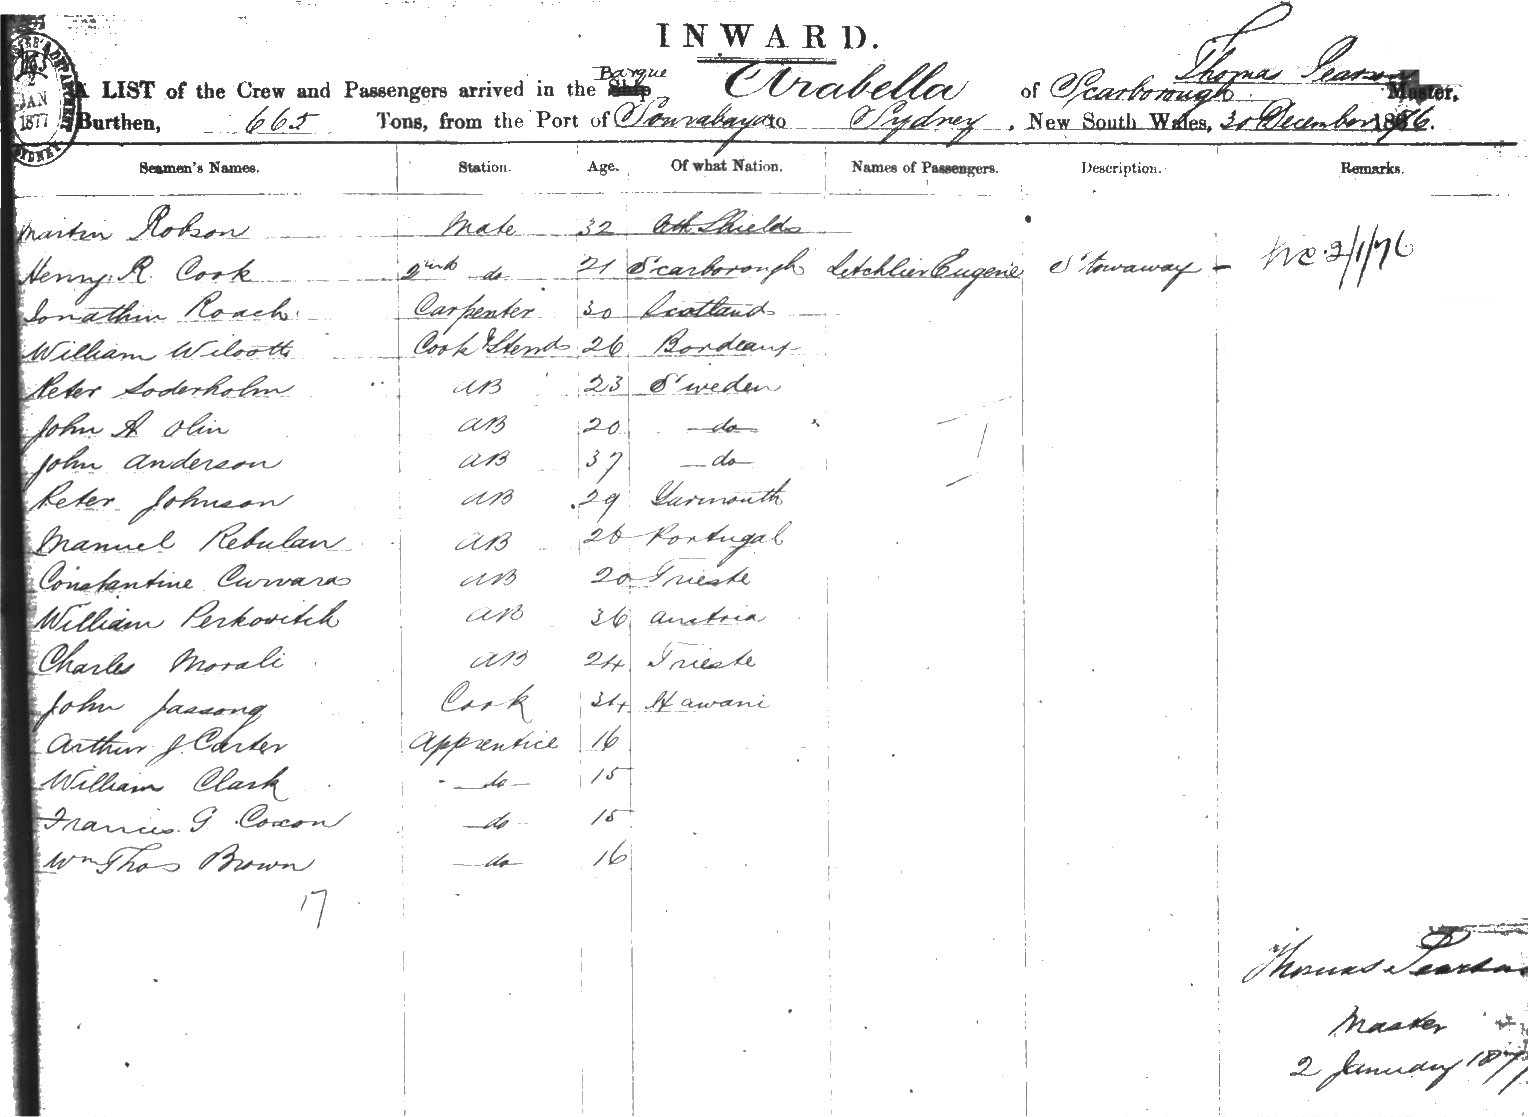 INWARD.
Thomas Pearson
A LIST of the Crew and Passengers arrived in the Ship Barque Arabella of Scarborough Master,
Burthen, 665 Tons, from the Port of Sourabaya to Sydney, New South Wales, 30 December 1876.
2 JAN 1877 SYDNEY
Seamen's Names. Station. Age. Of what Nation. Names of Passengers. Description. Remarks.
Martin Robson Mate 32 Nth Shields
Henry R. Cook 2nd do 21 Scarborough Letchlier Eugene Stowaway - 2/1/76
Jonathin Roach Carpenter 30 Scotland
William Cook & Stewd 26 Bordeaux
Peter Soderholm AB 23 Sweden
John A Olin AB 20 do
John Anderson AB 37 do
Peter Johnson AB 29 Yarmouth
Manuel Rebulan AB 26 Portugal
Constantine Curvaras AB 20 Trieste
William Perkovitch AB 36 Austria
Charles Morali AB 24 Trieste
John Jassong Cook 34 Hawani
Arthur J Carter Apprentice 16
William Clark do 15
Francis G Coxon do 15
Wm Thos Brown do 16
17
Thomas Pearson
Master
2 January 1877